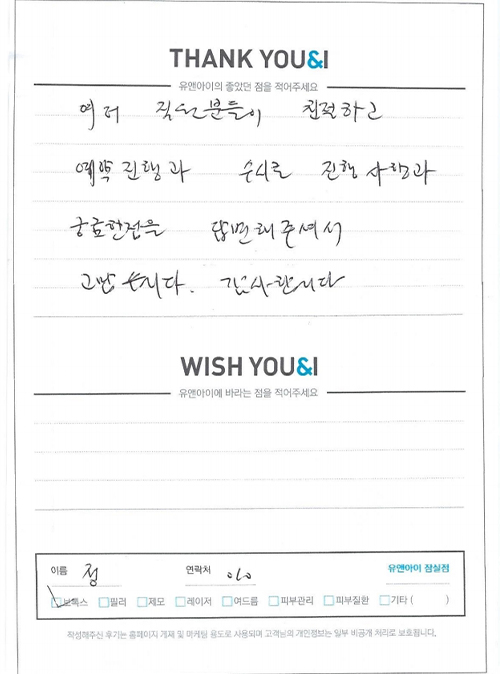 THANK YOU&I
유앤아이의 좋았던 점을 적어주세요
여러 직원분들이 친절하고
예약 진행과 수시로 진행 사항과
궁금한점을 답변해주셔서
고맙습니다. 감사합니다
WISH YOU&I
유앤아이에 바라는 점을 적어주세요
이름 정 연락처 010 유앤아이 잠실점
보톡스 필러 제모 레이저 여드름 피부관리 피부질환 기타 ( )
작성해주신 후기는 홈페이지 게재 및 마케팅 용도로 사용되며 고객님의 개인정보는 일부 비공개 처리로 보호됩니다.